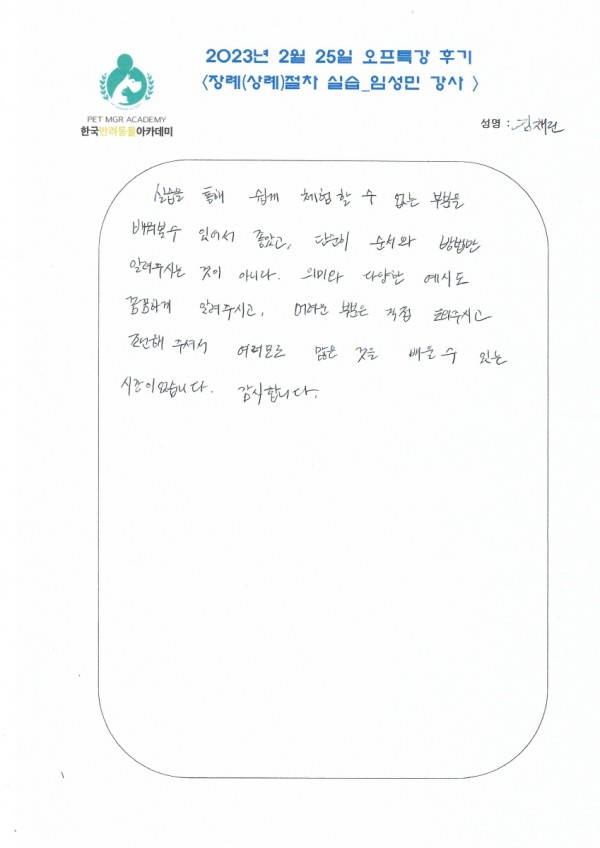 2023년 2월 25일 오프특강 후기
<장례(상례)절차 실습_임성민 강사 >
PET MGR ACADEMY
한국반려동물아카데미
성명 : 김채린
실습을 통해 쉽게 체험할 수 없는 부분을
배워볼수 있어서 좋았고, 단순히 순서와 방법만
알려주시는 것이 아니라. 의미와 다양한 예시도
꼼꼼하게 알려주시고, 어려운 부분은 직접 도와주시고
조언해 주셔서 여러모로 많은 것을 배울 수 있는
시간이었습니다. 감사합니다.